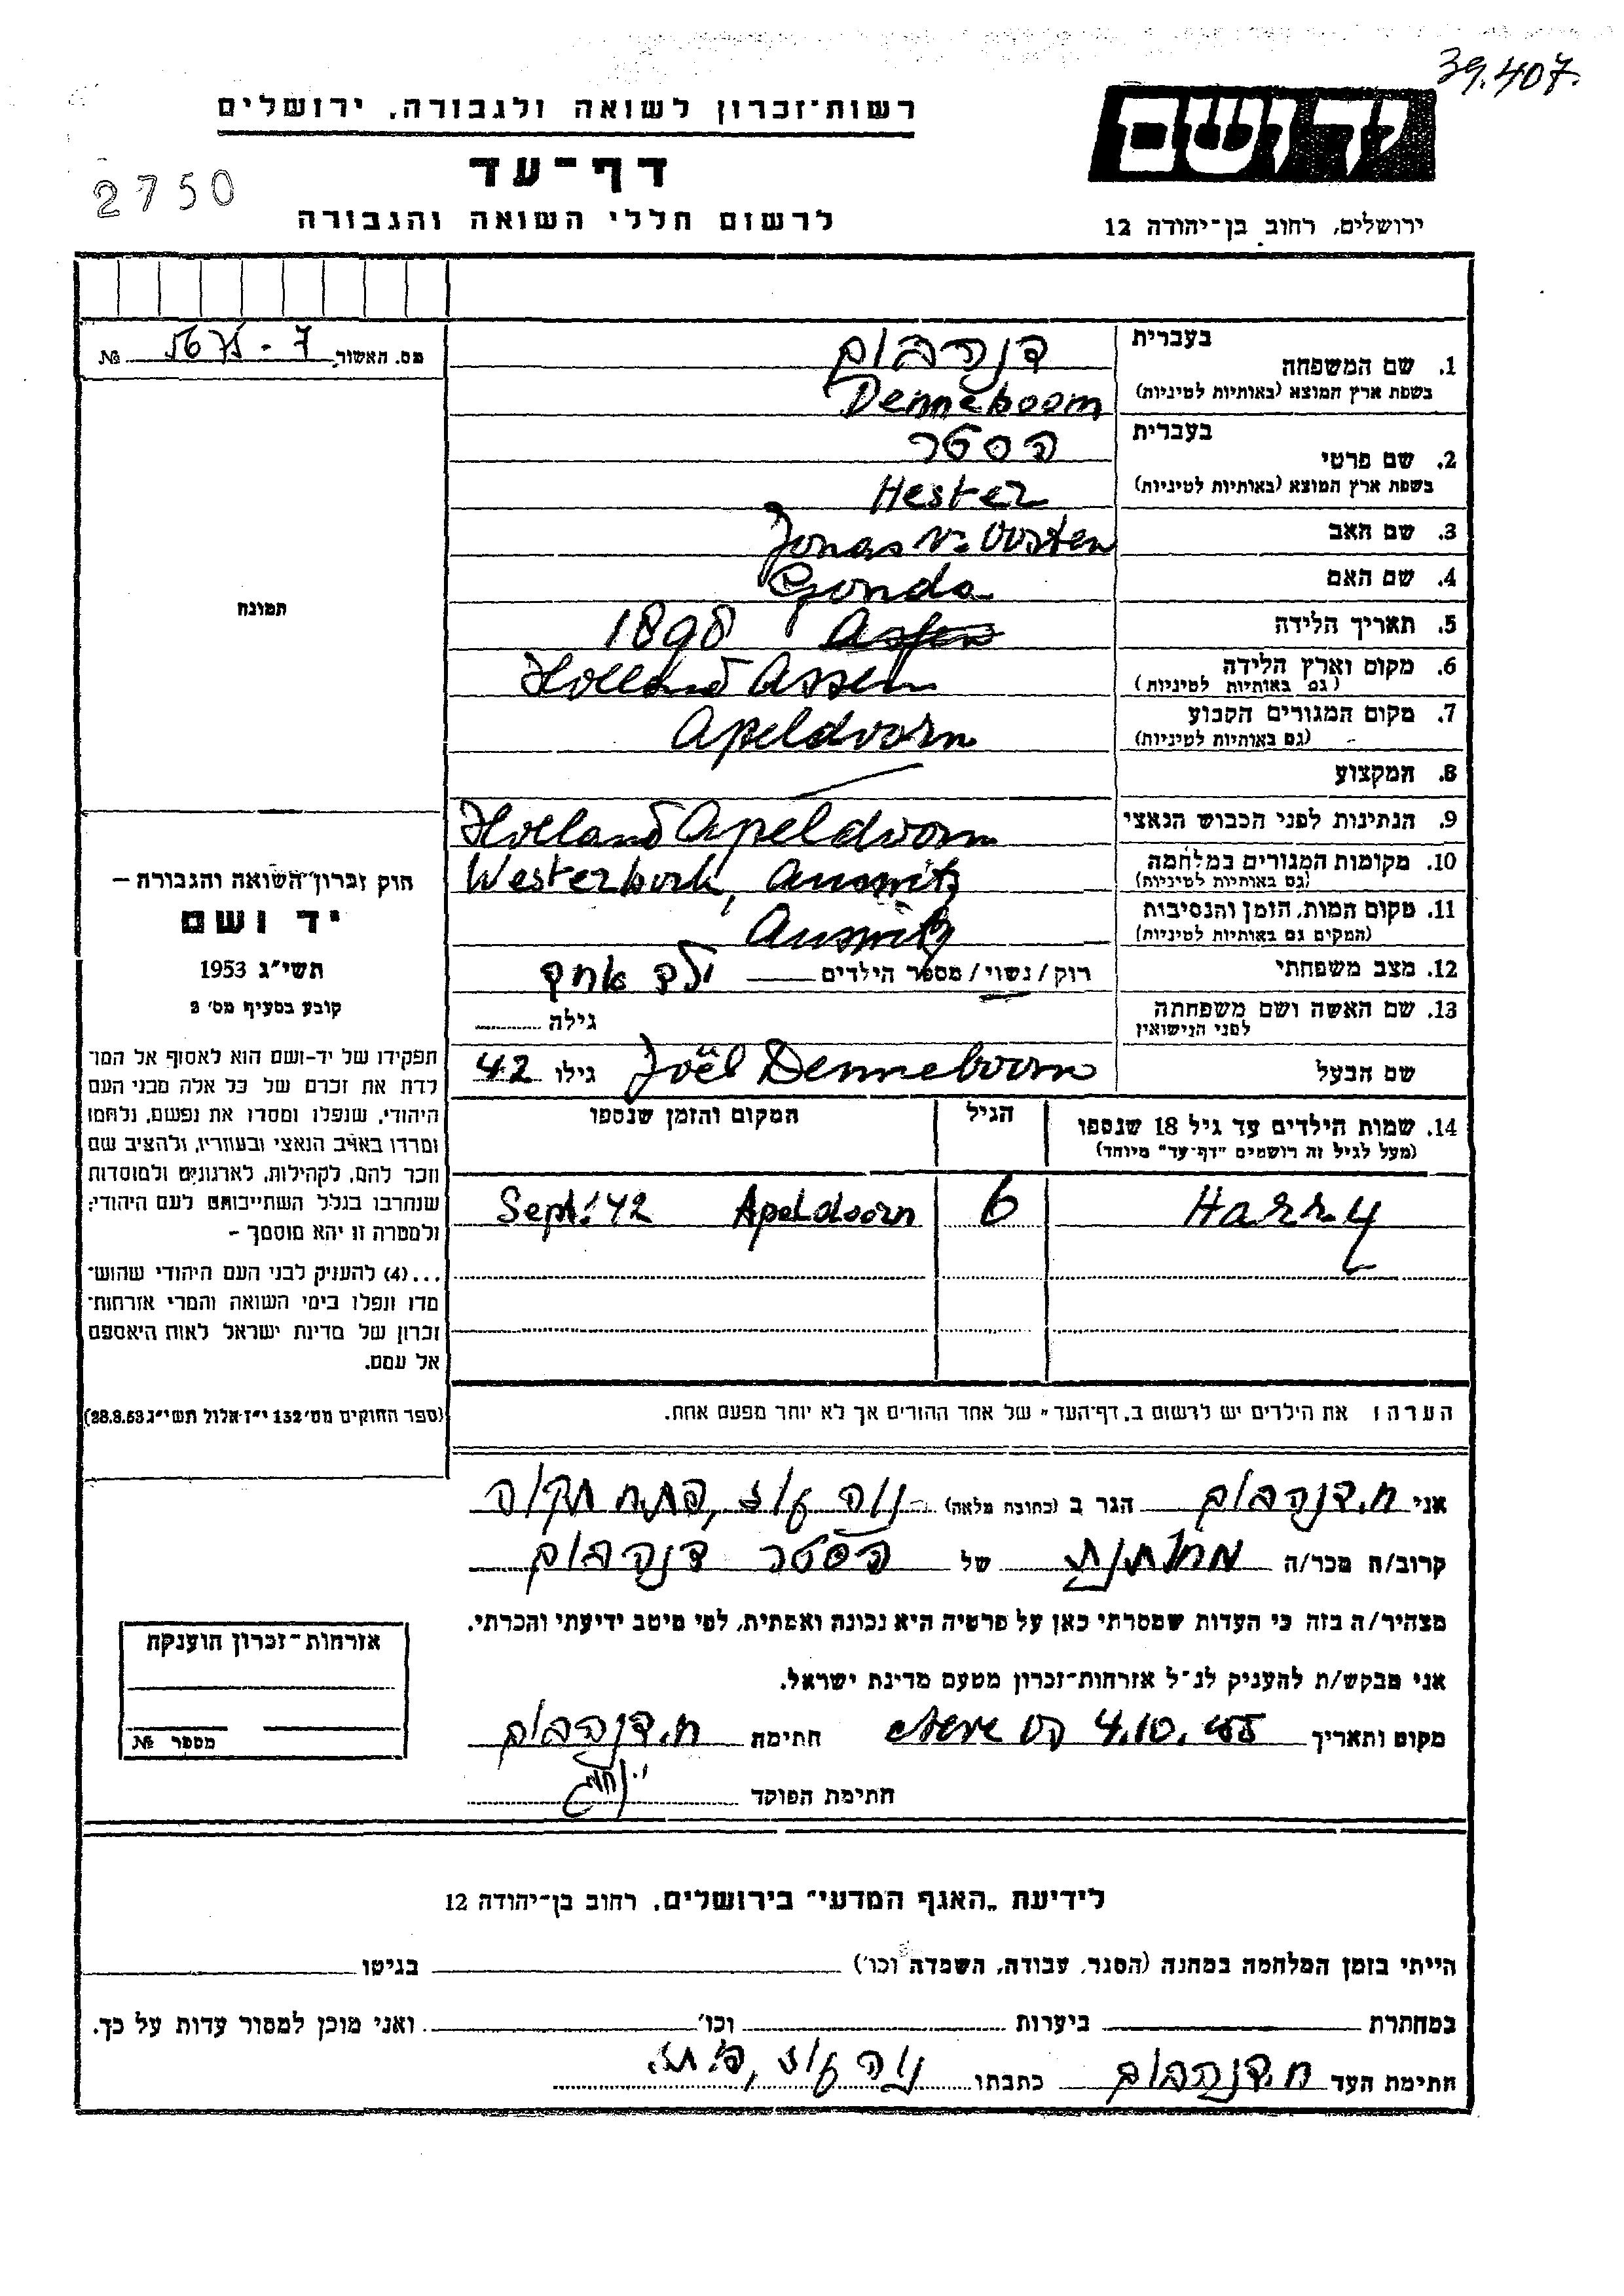 39.407.
יד ושם
רשות־זכרון לשואה ולגבורה, ירושלים
דף־עד
לרשום חללי השואה והגבורה
2750
ירושלים, רחוב בן־יהודה 12
מס. האשור №
1. שם המשפחה בעברית דנהבום
בשפת ארץ המוצא (באותיות לטיניות) Denneboom
2. שם פרטי בעברית הסטר
בשפת ארץ המוצא (באותיות לטיניות) Hester
3. שם האב Jonas v. Oosten
4. שם האם Gonda
5. תאריך הלידה 1898
6. מקום וארץ הלידה (גם באותיות לטיניות) Holland Assen
7. מקום המגורים הקבוע (גם באותיות לטיניות) Apeldoorn
8. המקצוע
9. הנתינות לפני הכבוש הנאצי Holland Apeldoorn
10. מקומות המגורים במלחמה (גם באותיות לטיניות) Westerbork, Auswitz
11. מקום המות, הזמן והנסיבות (המקום גם באותיות לטיניות) Auswitz
12. מצב משפחתי רוק/נשוי/מספר הילדים ילד אחד
13. שם האשה ושם משפחתה לפני הנישואין גילה
שם הבעל Joël Denneboom גילו 42
14. שמות הילדים עד גיל 18 שנספו (מעל לגיל זה רושמים "דף־עד" מיוחד) הגיל המקום והזמן שנספו
Harry 6 Apeldoorn Sept. '42
הערה: את הילדים יש לרשום ב„דף־העד" של אחד ההורים אך לא יותר מפעם אחת.
תמונה
חוק זכרון־השואה והגבורה —
יד ושם
תשי"ג 1953
קובע בסעיף מס' 2
תפקידו של יד-ושם הוא לאסוף אל המו־
לדת את זכרם של כל אלה מבני העם
היהודי, שנפלו ומסרו את נפשם, נלחמו
ומרדו באויב הנאצי ובעוזריו, ולהציב שם
וזכר להם, לקהילות, לארגונים ולמוסדות
שנחרבו בגלל השתייכותם לעם היהודי;
ולמטרה זו יהא מוסמך –
...(4) להעניק לבני העם היהודי שהוש־
מדו ונפלו בימי השואה והמרי אזרחות־
זכרון של מדינת ישראל לאות היאספם
אל עמם.
(ספר החוקים מס' 132 י"ז אלול תשי"ג 28.8.53)
אני ח. דנהבום הגר ב (כתובת מלאה) נוה עוז, פתח תקוה
קרוב/ה מכר/ה של הסטר דנהבום
מצהיר/ה בזה כי העדות שמסרתי כאן על פרטיה היא נכונה ואמתית, לפי מיטב ידיעתי והכרתי.
אני מבקש/ת להעניק לנ"ל אזרחות־זכרון מטעם מדינת ישראל.
מקום ותאריך 4.10. חתימה ח. דנהבום
חתימת הפוקד
אזרחות־זכרון הוענקה
מספר №
לידיעת „האגף המדעי" בירושלים, רחוב בן־יהודה 12
הייתי בזמן המלחמה במחנה (הסגר, עבודה, השמדה וכו') בגיטו
במחתרת ביערות וכו' ואני מוכן למסור עדות על כך.
חתימת העד ח. דנהבום כתבתו נוה עוז, פ"ת